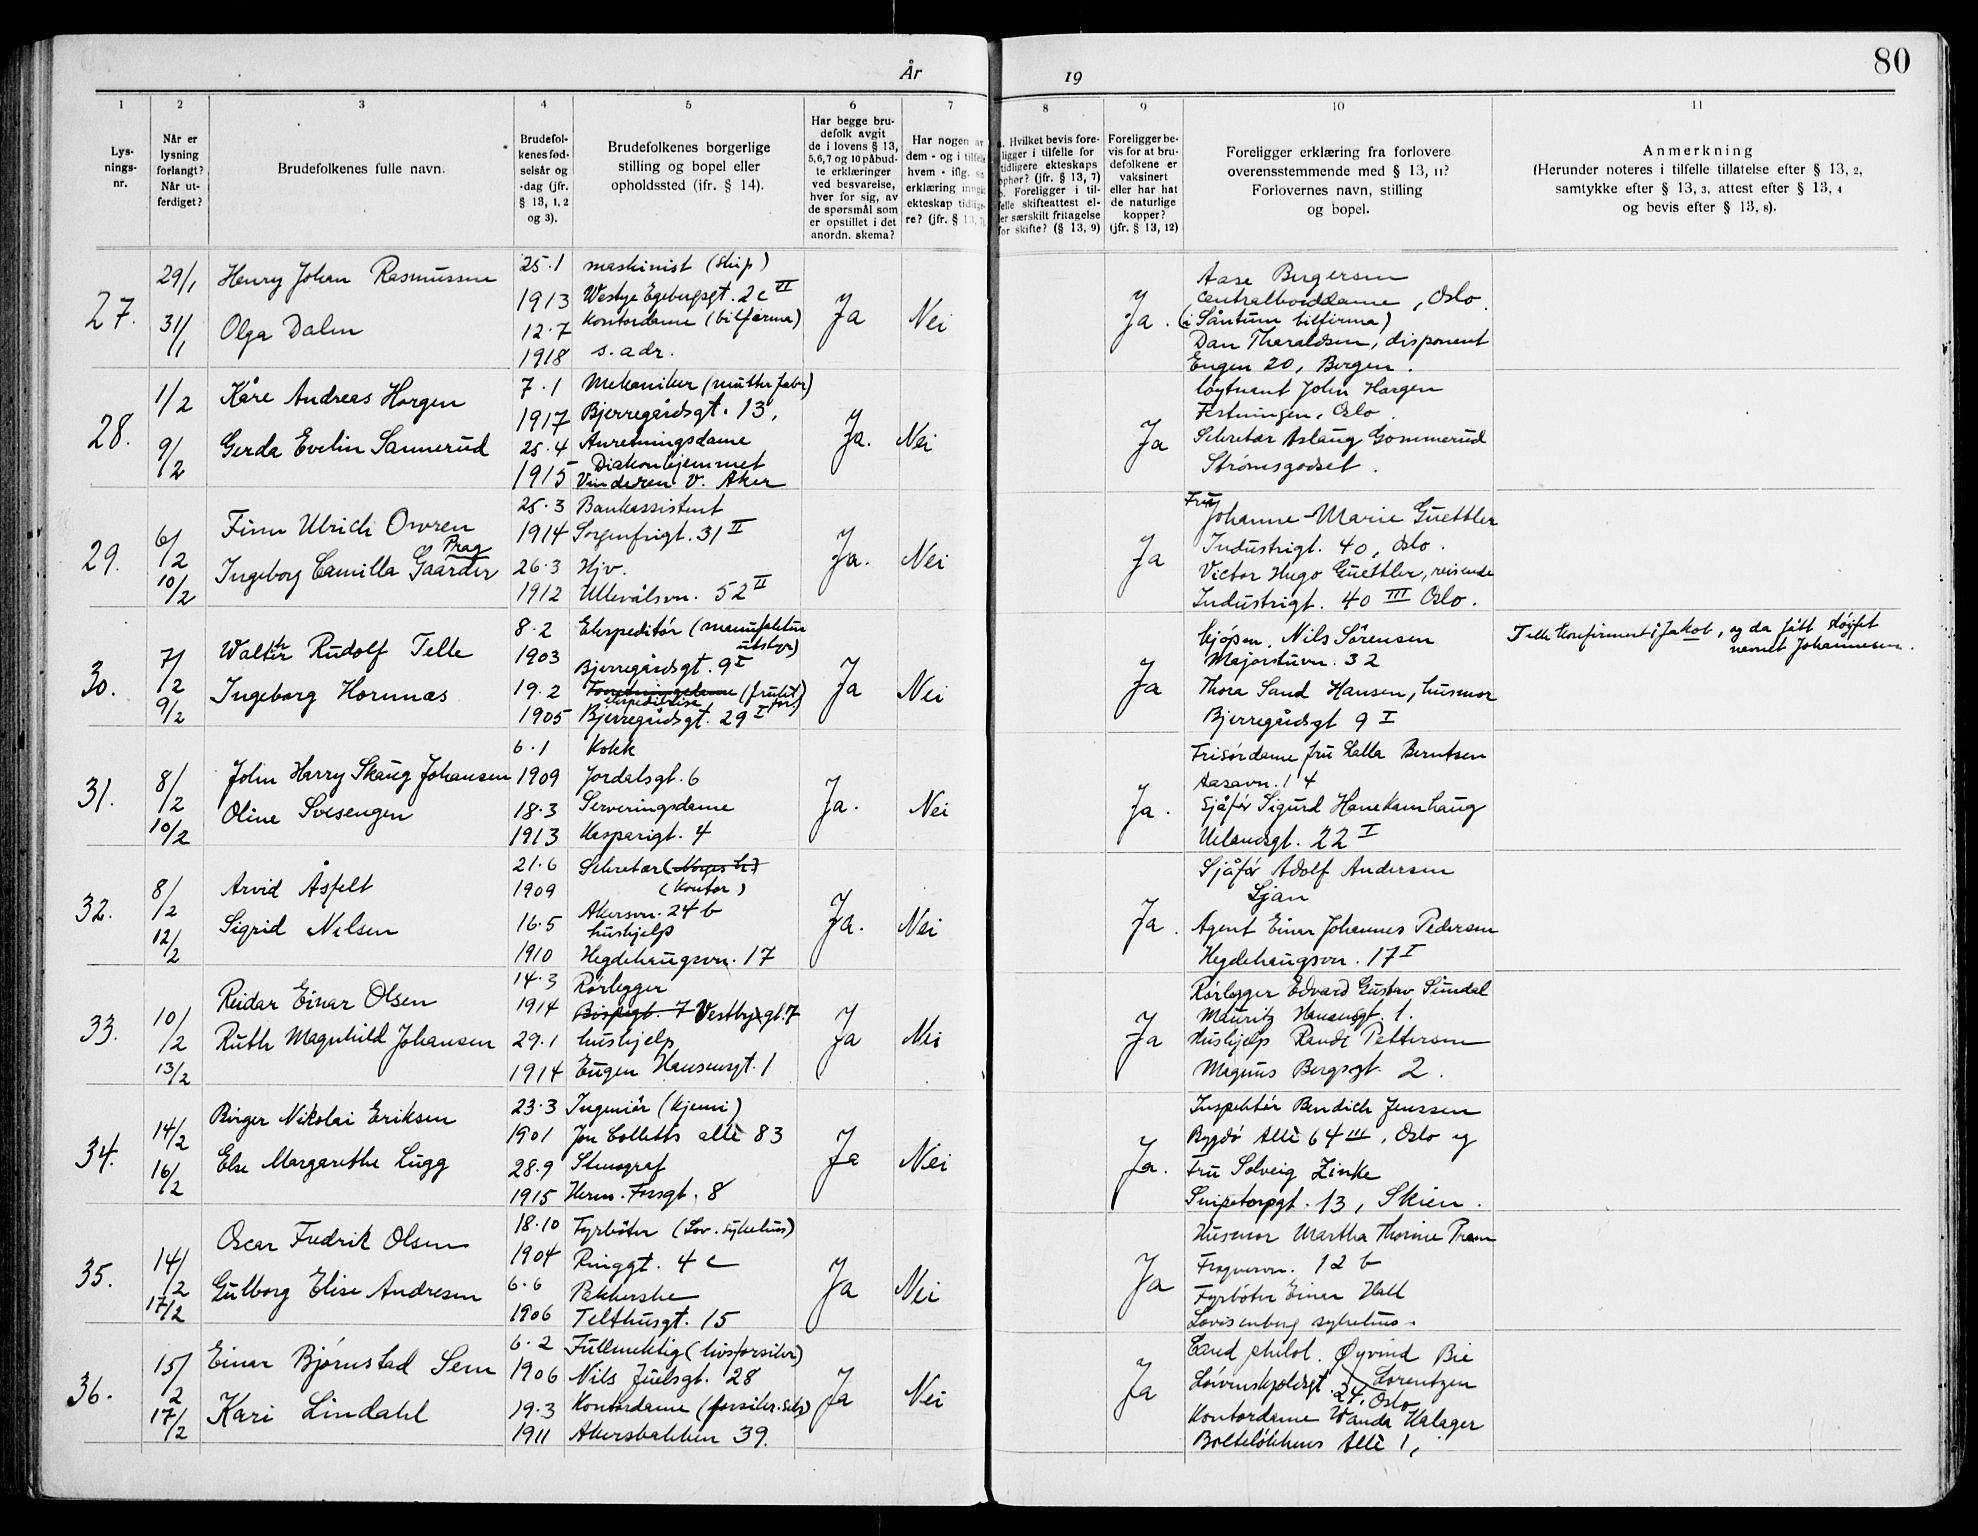 80
År 19
1 2 3 4 5 6 7 8 9 10 11
Lys-
nings-
nr.
Når er
lysning
forlangt?
Når ut-
ferdiget?
Brudefolkenes fulle navn.
Brudefol-
kenes fød-
selsår og
-dag (jfr.
§ 13, 1, 2
og 3).
Brudefolkenes borgerlige
stilling og bopel eller
opholdssted (jfr. § 14).
Har begge bru-
defolk avgit
de i lovens § 13,
5, 6, 7 og 10 påbud-
te erklæringer
ved besvarelse,
hver for sig, av
de spørsmål som
er opstillet i det
anordn. skema?
Har nogen av
dem - og i tilfelle
hvem - iflg. sin
erklæring inngått
ekteskap tidlige-
re? (jfr. § 13, 7)
a. Hvilket bevis fore-
ligger i tilfelle for
tidligere ekteskaps
ophør? (jfr. § 13, 7)
b. Foreligger i til-
felle skifteattest el-
ler særskilt fritagelse
for skifte? (§ 13, 9)
Foreligger be-
vis for at bru-
defolkene er
vaksinert
eller har hat
de naturlige
kopper?
(jfr. § 13, 12)
Foreligger erklæring fra forlovere
overensstemmende med § 13, 11?
Forlovernes navn, stilling
og bopel.
Anmerkning
(Herunder noteres i tilfelle tillatelse efter § 13, 2,
samtykke efter § 13, 3, attest efter § 13, 4
og bevis efter § 13, 8).
27.
29/1
31/1
Henry Johan Rasmussen
Olga Dalen
25.1
1913
12.7
1918
maskinist (skip)
Westye Egebergsgt. 2c VI
Kontordame (bilfirma)
s. adr.
Ja
Nei
Ja.
Aase Bergersen
centralborddame, Oslo.
(i Såntum bilfirma)
Dan Tharaldsen, disponent
Engen 20, Bergen.
28.
1/2
9/2
Kåre Andreas Horgen
Gerda Evelin Sannerud
7.1
1917
25.4
1915
Mekaniker (mutter fabr)
Bjerregårdsgt. 13,
Anretningsdame
Diakonhjemmet
Vinderen V. Aker
Ja.
Nei
Ja
løytnant John Horgen
Festningen, Oslo.
Sekretær Aslaug Gommerud
Strømsgodset.
29.
6/2
10/2
Finn Ulrich Owren
Prag
Ingeborg Camilla Gaarder
25.3
1914
26.3
1912
Bankassistent
Sorgenfrigt. 31 II
Hjv.
Ullevålsvn. 52 II
Ja.
Nei
Ja
Fru
Johanne-Marie Guettler
Industrigt. 40, Oslo.
Victor Hugo Guettler, reisende
Industrigt. 40 III Oslo.
30.
7/2
9/2
Walter Rudolf Telle
Ingeborg Hornnæs
8.2
1903
19.2
1905
Ekspeditør (manufaktur
utstyr)
Bjerregårdsgt. 9 I
Forretningsdame (frukt
ekspeditrise forr)
Bjerregårdsgt. 29 I
Ja
Nei
Ja
Nils Sørensen
Majorstuvn. 32
Thora Sand Hansen, husmor
Bjerregårdsgt 9 I
Telle konfirmert i Jakob, og da fått tøyfet
nevnet Johannesen.
31.
8/2
10/2
John Harry Skaug Johansen
Oline Svesengen
6.1
1909
18.3
1913
Kokk
Jordalsgt. 6
Serveringsdame
Kasparigt. 4
Ja.
Nei
Ja.
Frisørdame fru Lalla Berntsen
Aasavn. 14
Sjåfør Sigurd Hanekamhaug
Uelandsgt. 22 I
32.
8/2
12/2
Arvid Åsfelt
Sigrid Nilsen
21.6
1909
16.5
1910
Sekretær (Norges h.)
(kontor)
Akersvn. 24 b
hushjelp
Hegdehaugsvn. 17
Ja.
Nei
Ja.
Sjåfør Adolf Andersen
Ljan
Agent Einar Johannes Pedersen
Hegdehaugsvn. 17 I
33.
10/2
13/2
Reidar Einar Olsen
Ruth Magnhild Johansen
14.3
1914
29.1
1914
Rørlegger
Bispegt. 7 Vestbygt. 7
hushjelp
Eugen Hansensgt. 1
Ja
Nei
Ja
Rørlegger Edvard Gustav Sundal
Mauritz Hansensgt. 1.
Hushjelp Randi Pettersen
Magnus Bergsgt. 2.
34.
14/2
16/2
Birger Nikolai Eriksen
Else Margarethe Lugg
23.3
1901
28.9
1915
Ingeniør (kjemi)
Jon Colletts allé 83
Stenograf
Herm. Fossgt. 8
Ja
Nei
Ja.
Inspektør Bendich Jenssen
Bygdø Allé 64 III, Oslo og
Fru Solveig Zinke
Snipetorpgt. 13, Skien.
35.
14/2
17/2
Oscar Fredrik Olsen
Gulborg Elise Andresen
18.10
1904
6.6
1906
Fyrbøter (Lov. sykehus)
Ringgt. 4 c
Pakkerske
Telthusgt. 15
Ja
Nei
Ja
Husmor Martha Thorine Pram
Frognervn. 12 b
Fyrbøter Einar Hall
Lovisenberg sykehus.
36.
15/2
17/2
Einar Bjørnstad Sem
Kari Lindahl
6.2
1906
19.3
1911
Fullmektig (livsforsikr)
Nils Juelsgt. 28
Kontordame (forsikr. selsk)
Akersbakken 39.
Ja
Nei
Ja
Cand philol. Øyvind Bie
Lorentzen
Løvenskjoldsgt. 24, Oslo
Kontordame Wanda Halager
Bolteløkkens Allé 1,